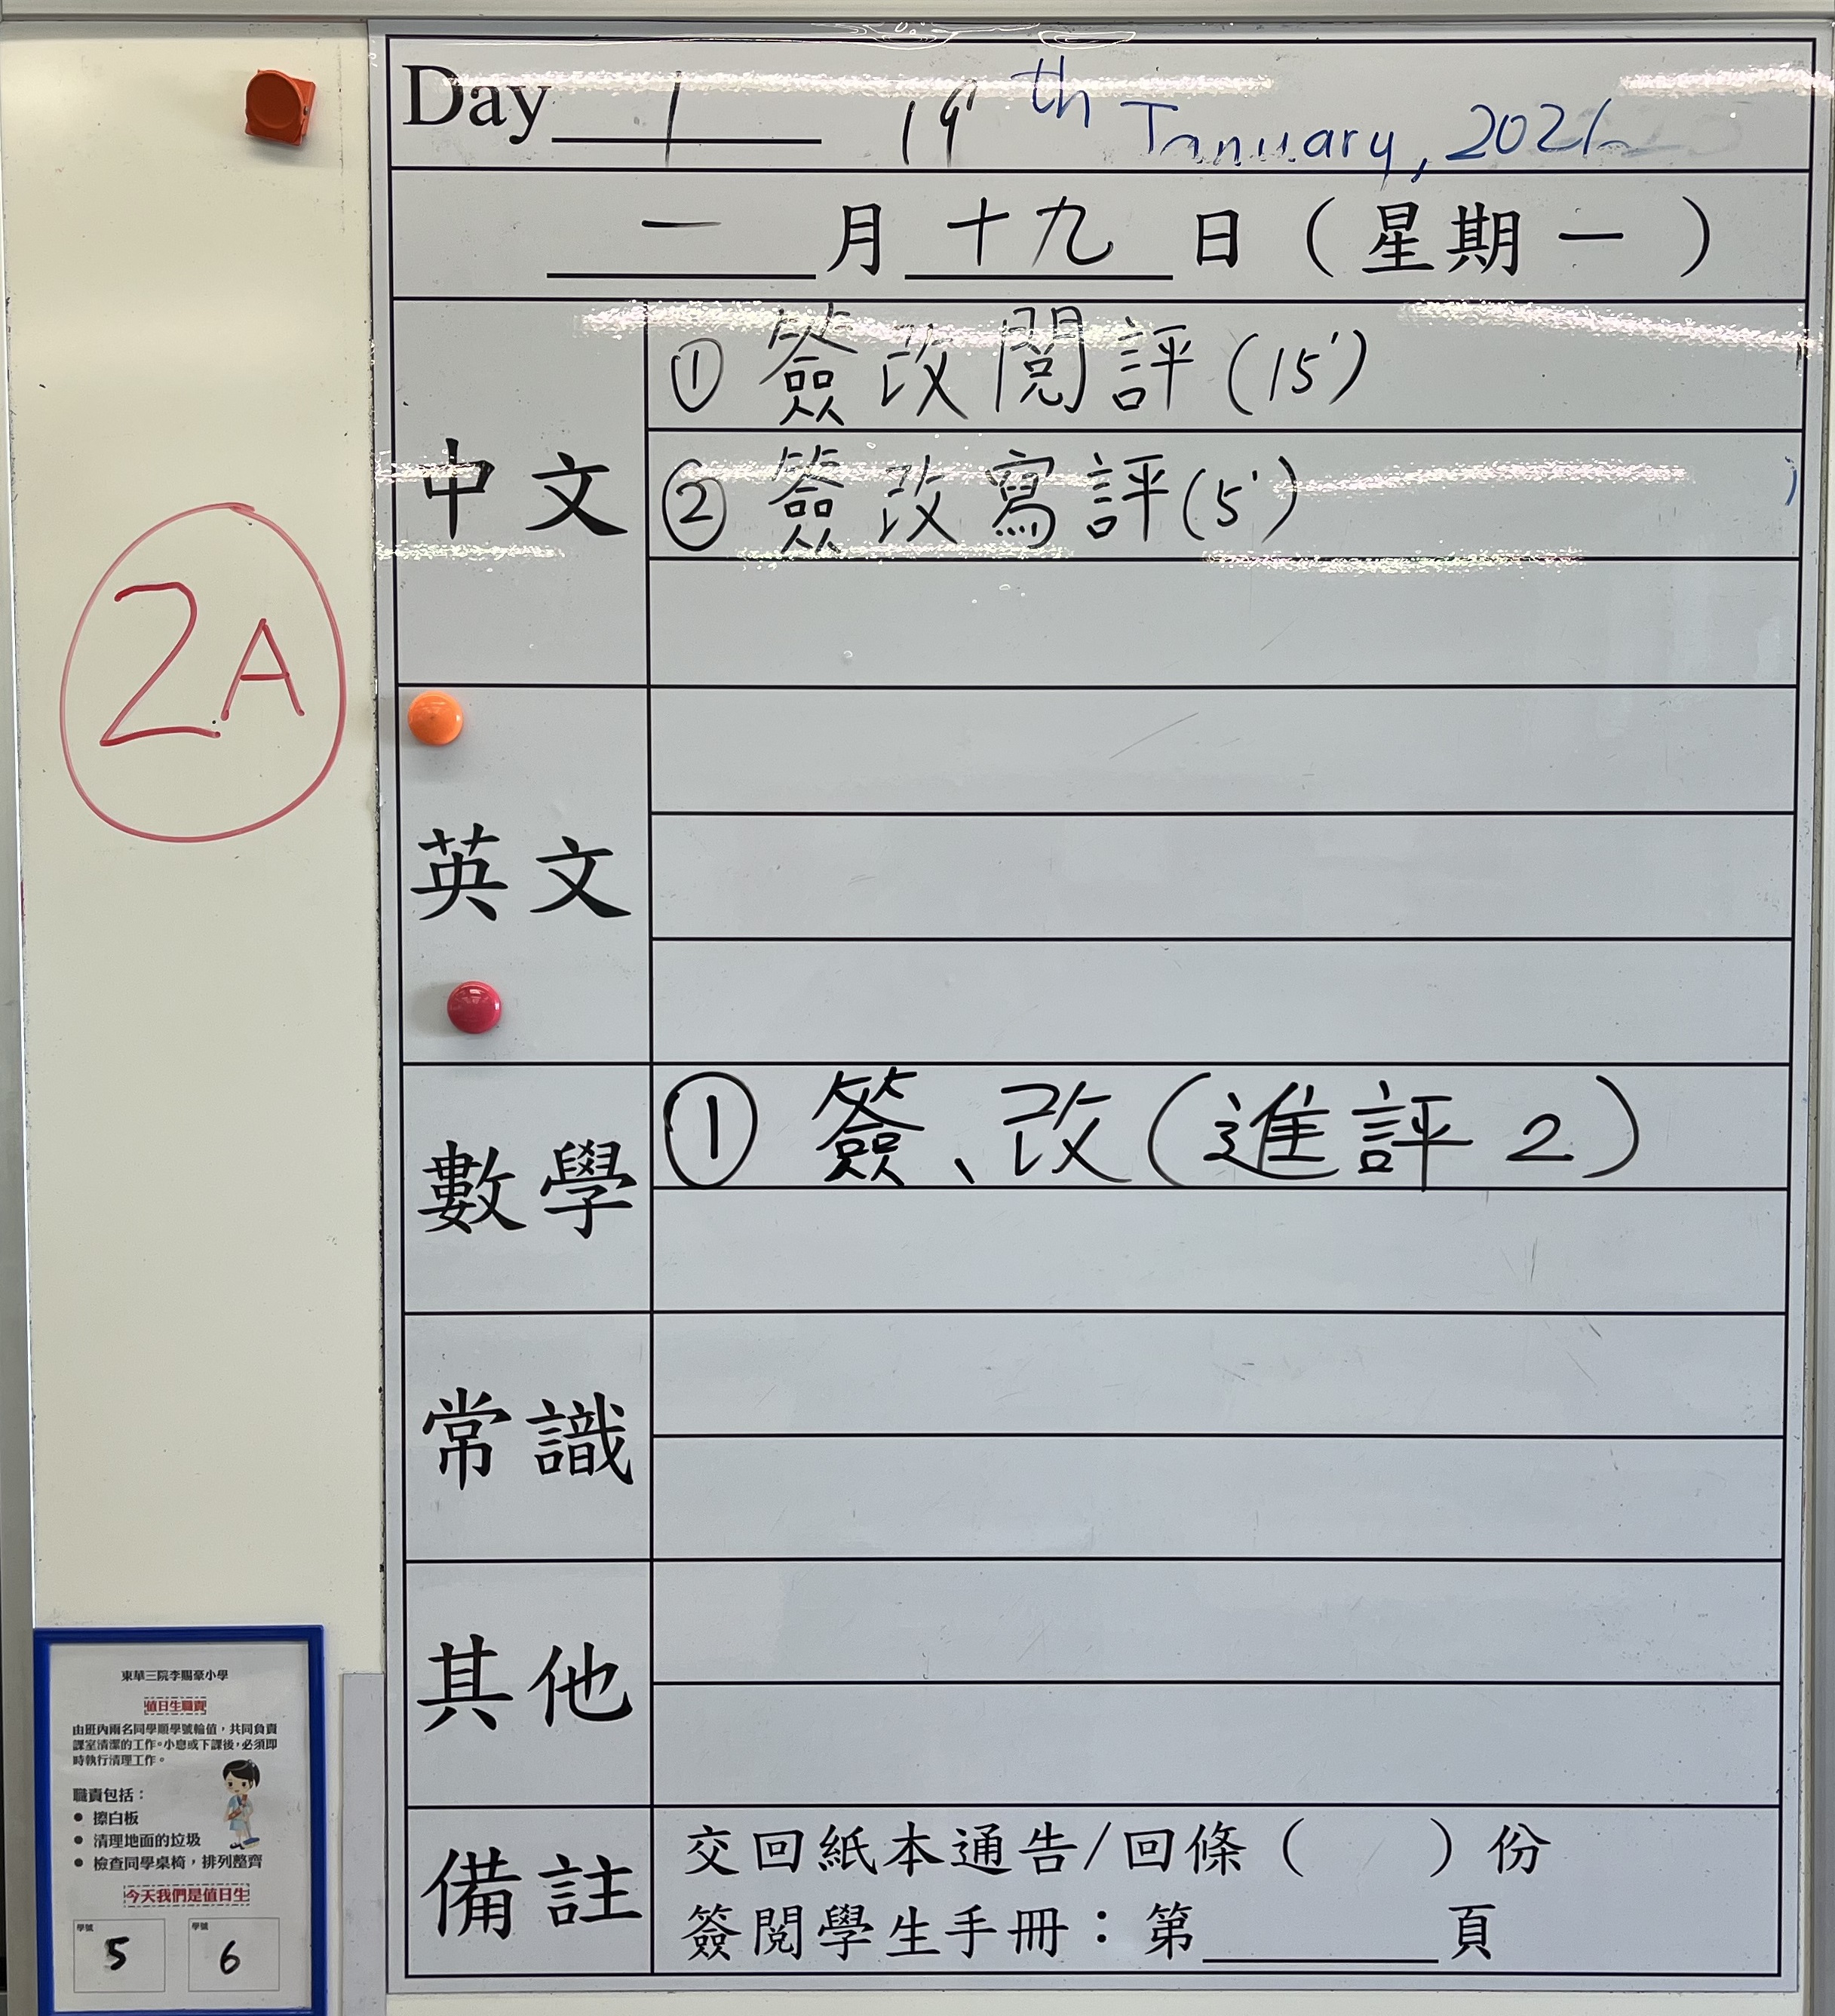 Day 1 19th January, 202
一月十九日(星期一)
中文
① 簽改閱評(15')
② 簽改寫評(5')
2A
英文
數學
① 簽、改(進評2)
常識
其他
備註
交回紙本通告/回條( )份
簽閱學生手冊:第______頁
東華三院李賜豪小學
值日生職責
由班內兩名同學順學號輪值,共同負責
課室清潔的工作。小息或下課後,必須即
時執行清理工作。
職責包括:
● 擦白板
● 清理地面的垃圾
● 檢查同學桌椅,排列整齊
今天我們是值日生
學號 學號
5 6